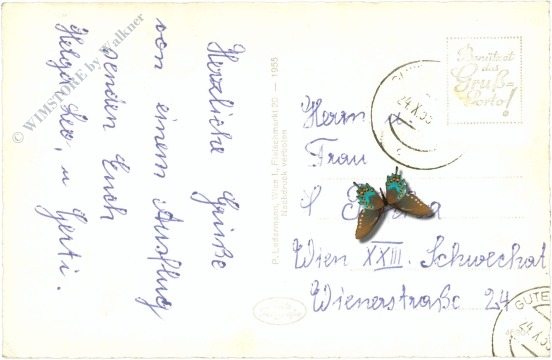 Herzliche Grüße
von einem Ausflug
senden Euch
Helga Leo, u Gerti.
© WIMSTORE by Walkner
P. Ledermann, Wien I., Fleischmarkt 20 — 1955
Nachdruck verboten
Benützet
das
Gruß-
Porto!
24.X.55
Herrn u
Frau
Wien XXIII. Schwechat
Wienerstraße 24
GUTE
24.X.55